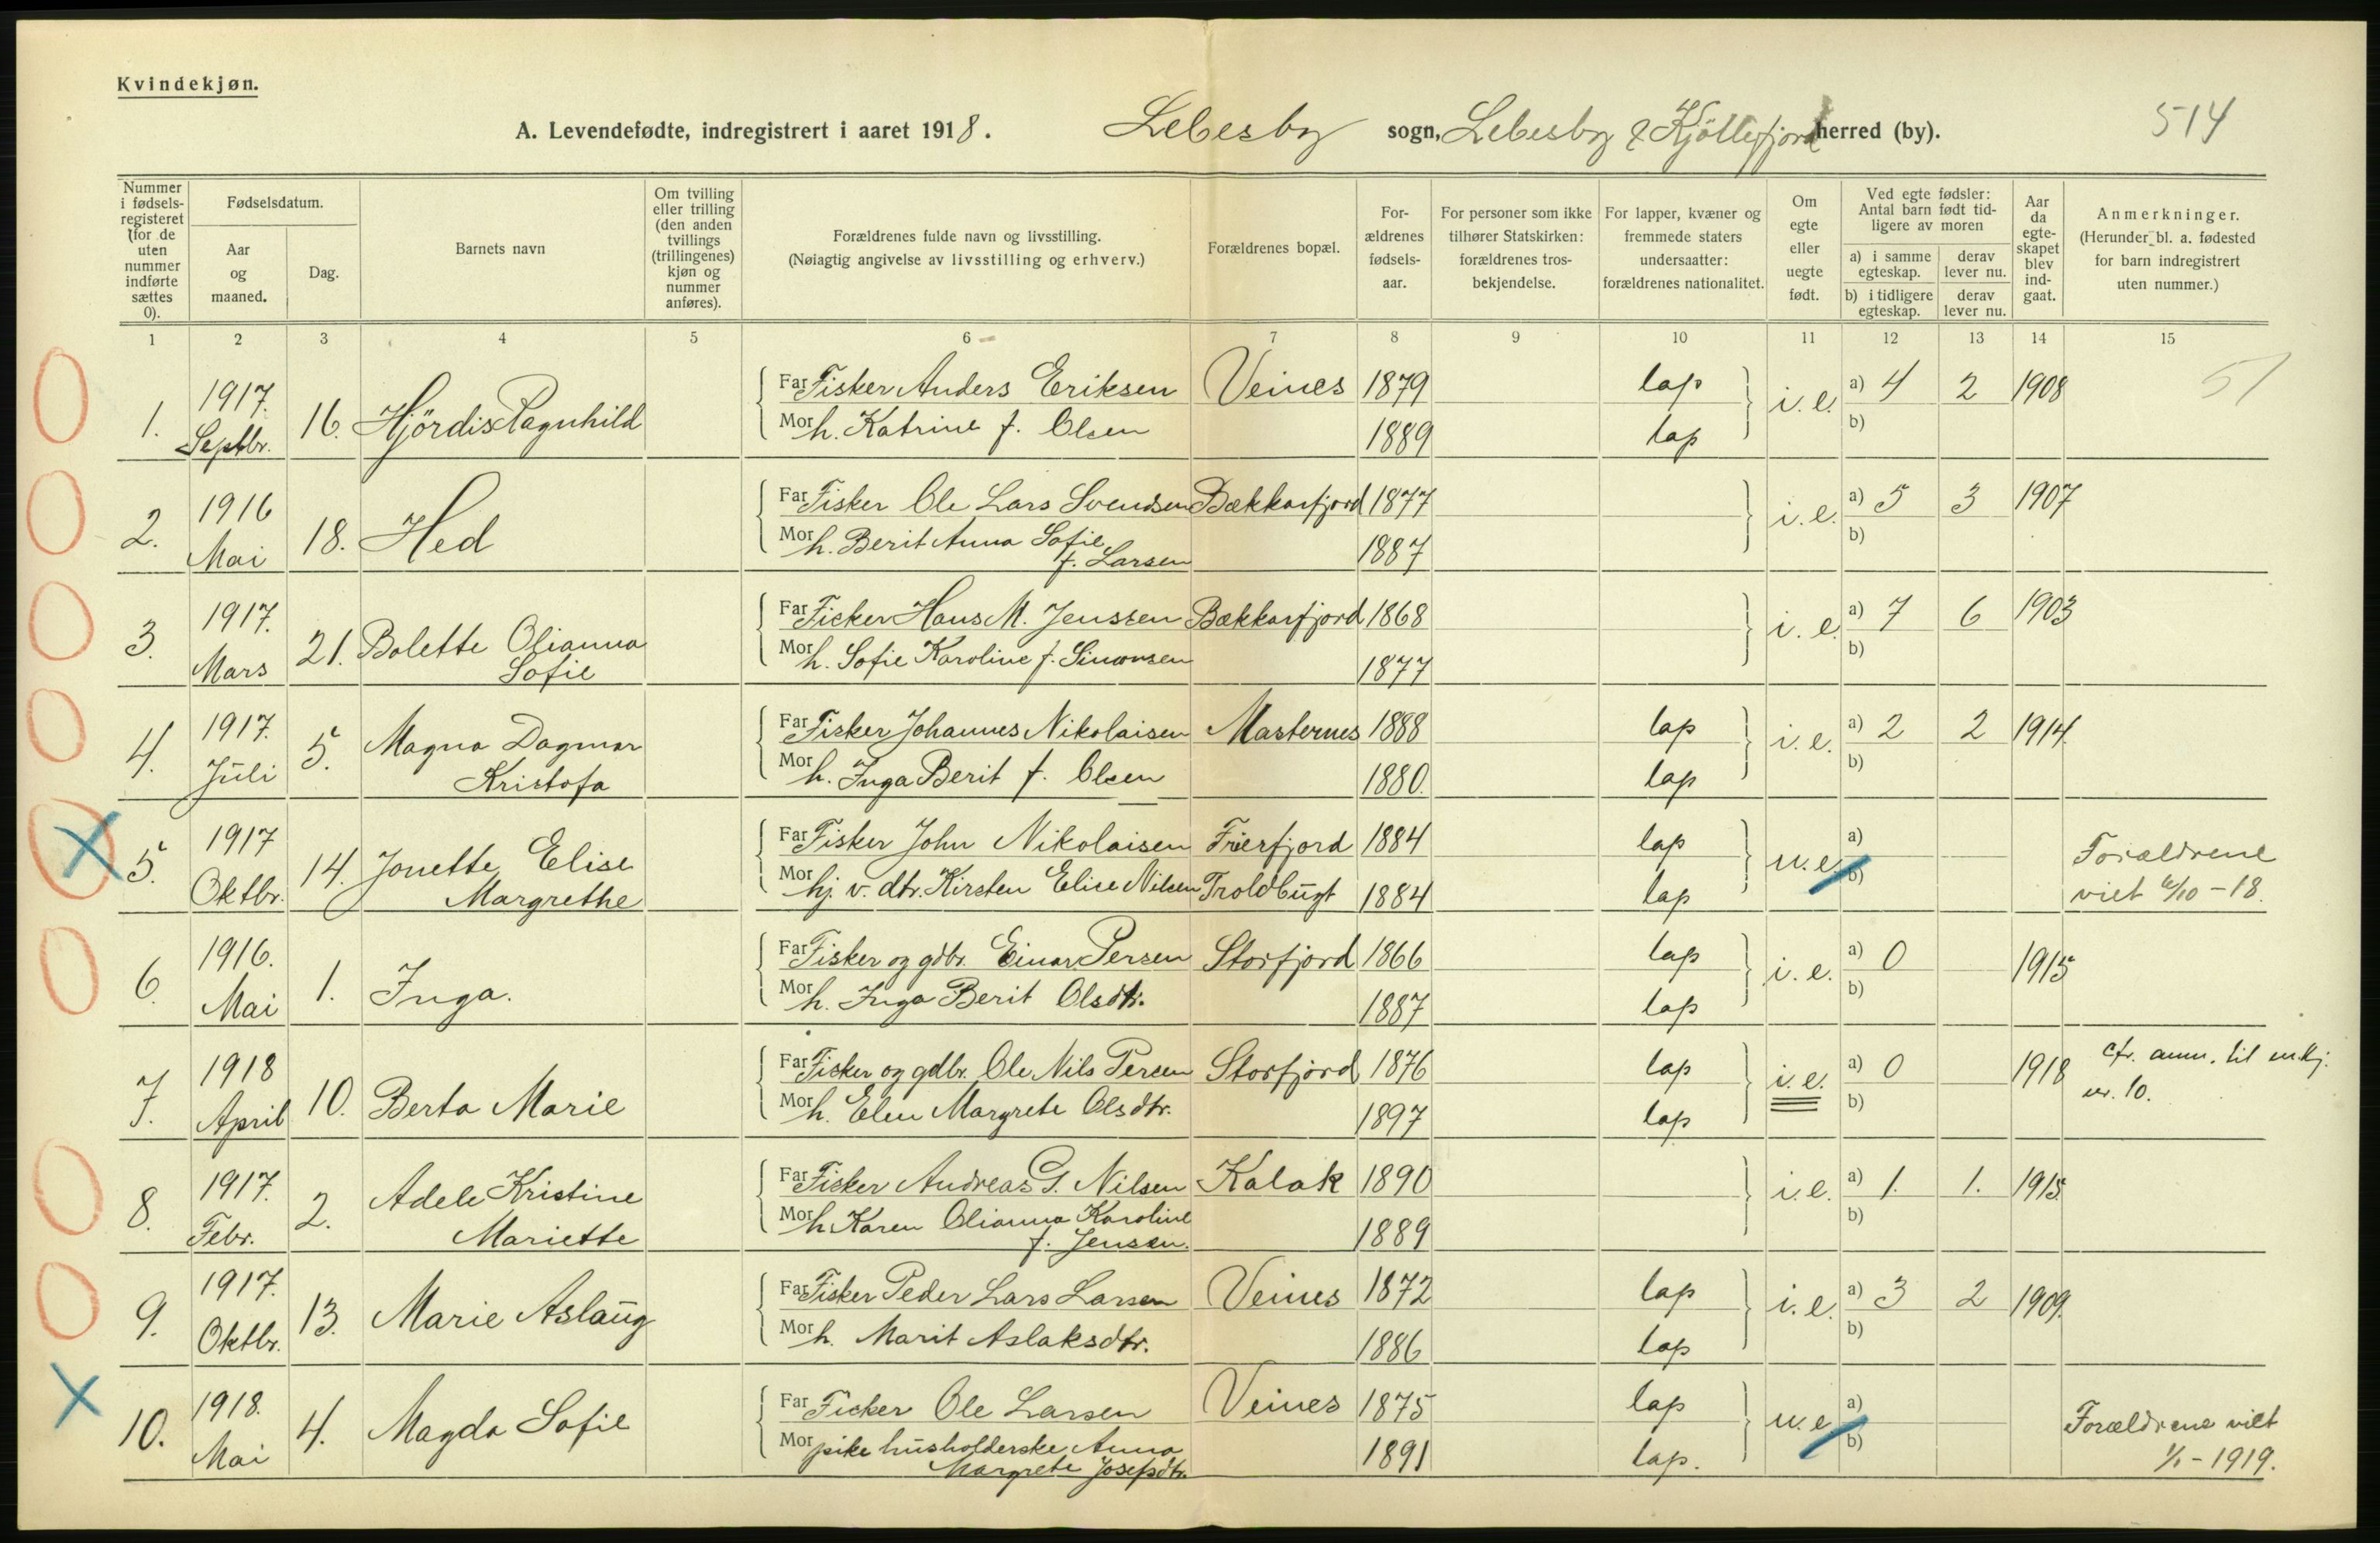 Kvindekjøn.
A. Levendefødte, indregistrert i aaret 1918. Lebesby sogn, Lebesby & Kjöllefjord herred (by). 514
Nummer i fødselsregisteret (for de uten nummer indførte sættes 0).
Fødselsdatum.
Aar og maaned.
Dag.
Barnets navn
Om tvilling eller trilling (den anden tvillings (trillingenes) kjøn og nummer anføres).
Forældrenes fulde navn og livsstilling.
(Nøiagtig angivelse av livsstilling og erhverv.)
Forældrenes bopæl.
Forældrenes fødselsaar.
For personer som ikke tilhører Statskirken: forældrenes trosbekjendelse.
For lapper, kvæner og fremmede staters undersaatter: forældrenes nationalitet.
Om egte eller uegte født.
Ved egte fødsler: Antal barn født tidligere av moren
a) i samme egteskap. derav lever nu.
b) i tidligere egteskap. derav lever nu.
Aar da egteskapet blev indgaat.
Anmerkninger.
(Herunder bl. a. fødested for barn indregistrert uten nummer.)
1 2 3 4 5 6 7 8 9 10 11 12 13 14 15
1. 1917. Septbr. 16. Hjördis Ragnhild
Far Fisker Anders Eriksen Veines 1879 lap i. e. a) 4 2 1908 51
Mor h. Katrine f. Olsen 1889 lap b)
2. 1916 Mai 18. Hed
Far Fisker Ole Lars Svendsen Bækkarfjord 1877 i. e. a) 5 3 1907
Mor h. Berit Anna Sofie f. Larsen 1887 b)
3. 1917. Mars 21. Bolette Olianna Sofie
Far Fisker Hans M. Jenssen Bækkarfjord 1868 i. e. a) 7 6 1903
Mor h. Sofie Karoline f. Simonsen 1877 b)
4. 1917. Juli 5. Magna Dagmar Kristofa
Far Fisker Johannes Nikolaisen Masternes 1888 lap i. e. a) 2 2 1914.
Mor h. Inga Berit f. Olsen 1880. lap b)
5. 1917 Oktbr. 14. Jonette Elise Margrethe
Far Fisker John Nikolaisen Frierfjord 1884 lap u. e. a) Forældrene
Mor hj. v. dtr. Kirsten Elise Nilsen Troldbugt 1884 lap b) viet 6/10 - 18.
6. 1916. Mai 1. Inga.
Far Fisker og gdbr. Einar Persen Storfjord 1866 lap i. e. a) 0 1915
Mor h. Inga Berit Olsdtr. 1887 lap b)
7. 1918 April 10. Berta Marie
Far Fisker og gdbr. Ole Nils Persen Storfjord 1876 lap i. e. a) 0 1918 cfr. anm. til mkj.
Mor h. Elen Margrete Olsdtr. 1897 lap b) nr. 10.
8. 1917. Febr. 2. Adele Kristine Mariette
Far Fisker Andreas G. Nilsen Kalak 1890 i. e. a) 1. 1. 1915
Mor h. Karen Olianna Karoline f. Jensen. 1889 b)
9. 1917. Oktbr. 13. Marie Aslaug
Far Fisker Peder Lars Larsen Veines 1872 lap i. e. a) 3 2 1909.
Mor h. Marit Aslaksdtr. 1886 lap b)
10. 1918. Mai 4. Magda Sofie
Far Fisker Ole Larsen Veines 1875 lap u. e. a) Forældrene viet
Mor pike husholderske Anna Margrete Josefsdtr. 1891 lap. b) 1/1 - 1919.